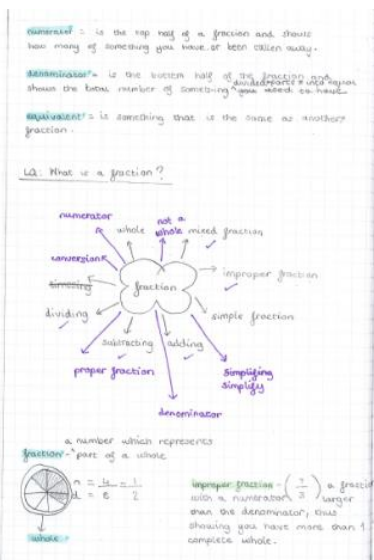 numerator = is the top half of a fraction and shows
how many of something you have or been taken away.
denominator = is the bottom half of the fraction and
divided parts
shows the total number of something you used to have
equivalent = is something that is the same as another
fraction.
LQ: What is a fraction?
numerator
whole
not a
whole
mixed fraction
conversion
improper fraction
timesing
fraction
dividing
simple fraction
subtracting
adding
proper fraction
simplifying
simplify
denominator
a number which represents
fraction - part of a whole
n = 4 = 1
d = 8 2
whole
improper fraction - (7/3) a fraction
with a numerator larger
than the denominator, thus
showing you have more than 1
complete whole.